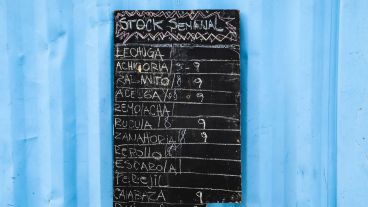 STOCK SEMANAL
LECHUGA
ACHICORIA 9
RABANITO 9
ACELGA 9
REMOLACHA
RUCULA 9
ZANAHORIA 9
REPOLLO
ESCAROLA
PEREJIL
CALABAZA 9